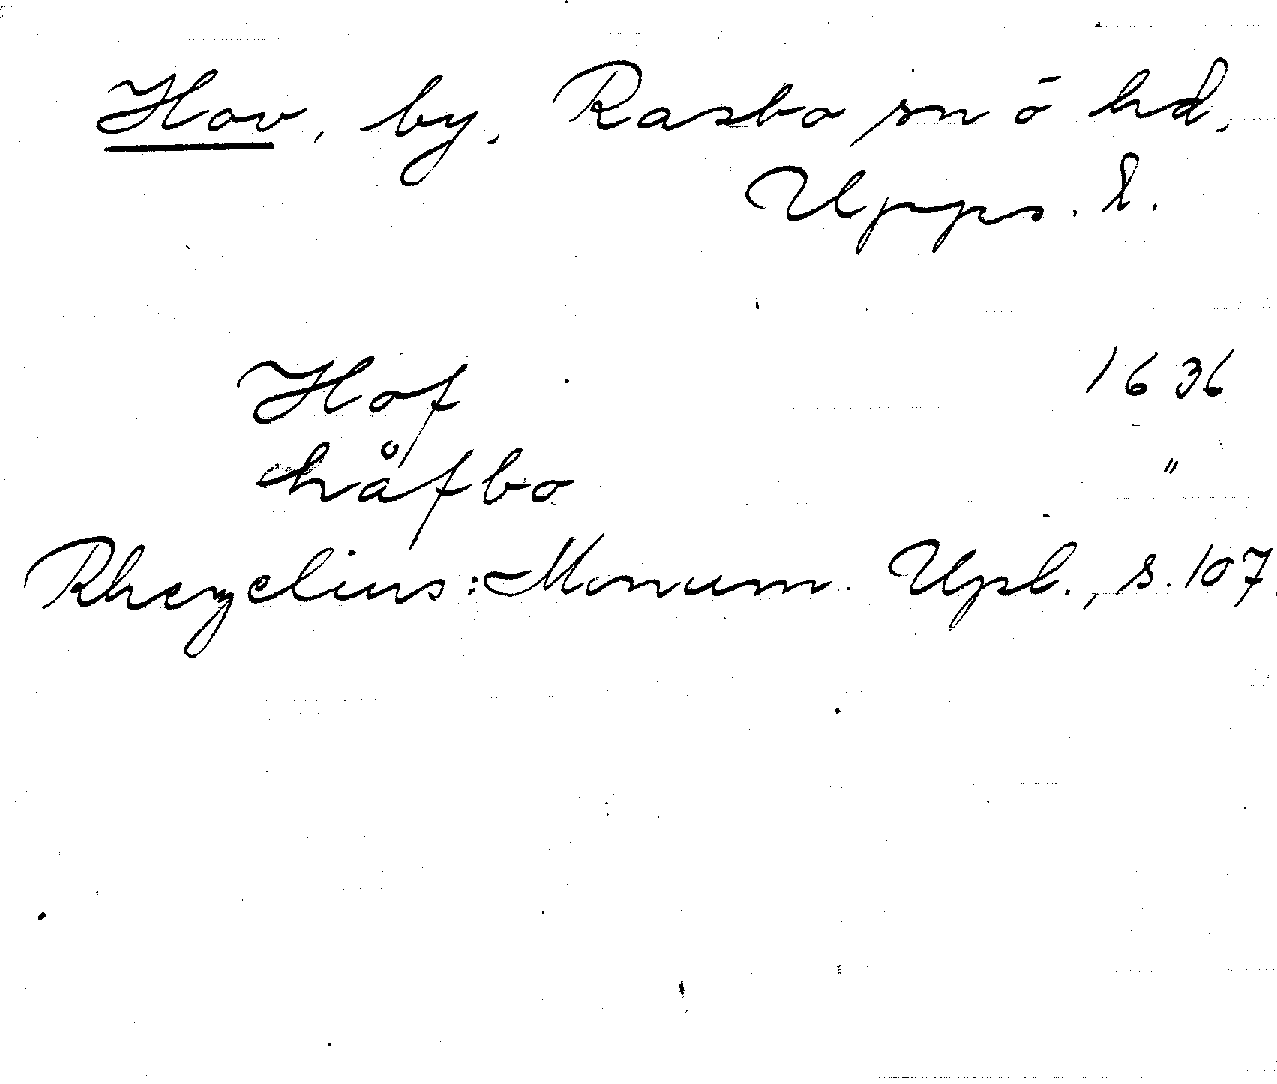 Hov, by, Rasbo sn o hd,
Upps. l.
Hof 1636
håfbo "
Rhezelius: Monum. Upl., s. 107.